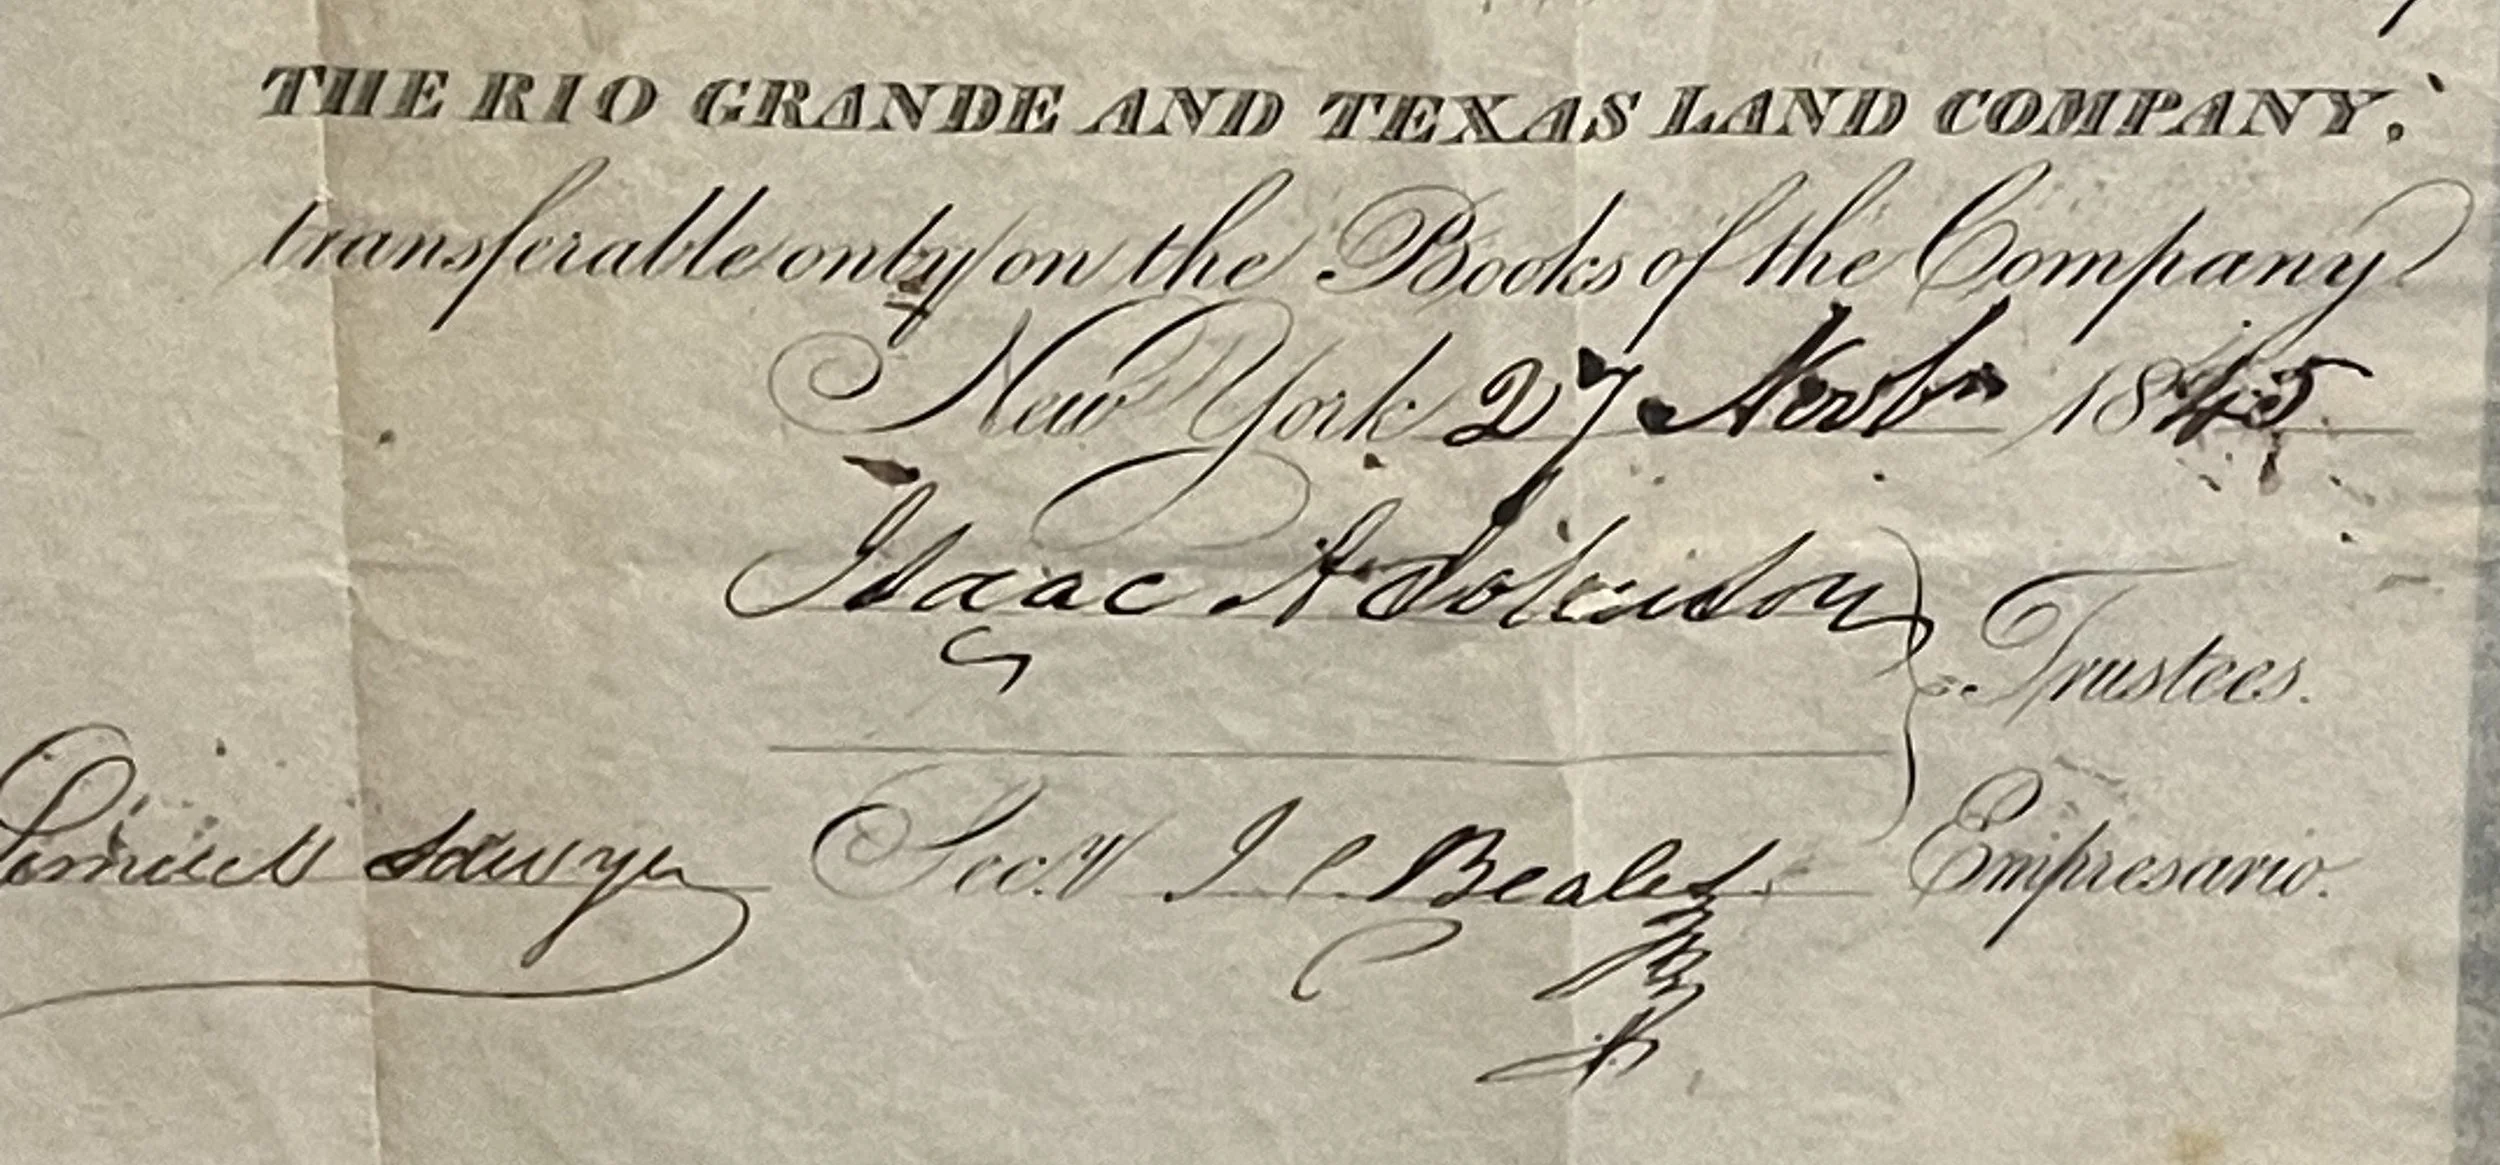 THE RIO GRANDE AND TEXAS LAND COMPANY.
transferable only on the Books of the Company
New York 27 Novbr 1845
Isaac A Johnson
Trustees.
Samuel Sawyer Secy. J C Beales Empresario.